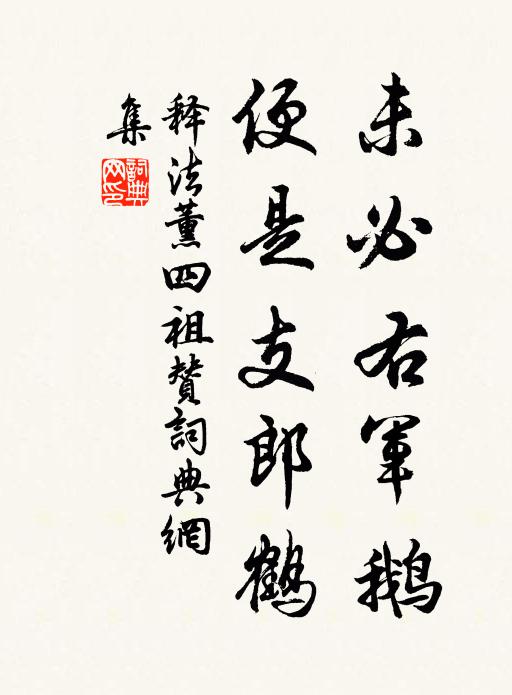 未必右軍鵝
便是支郎鶴
释法薰四祖贊詞典網
集
詞典網印